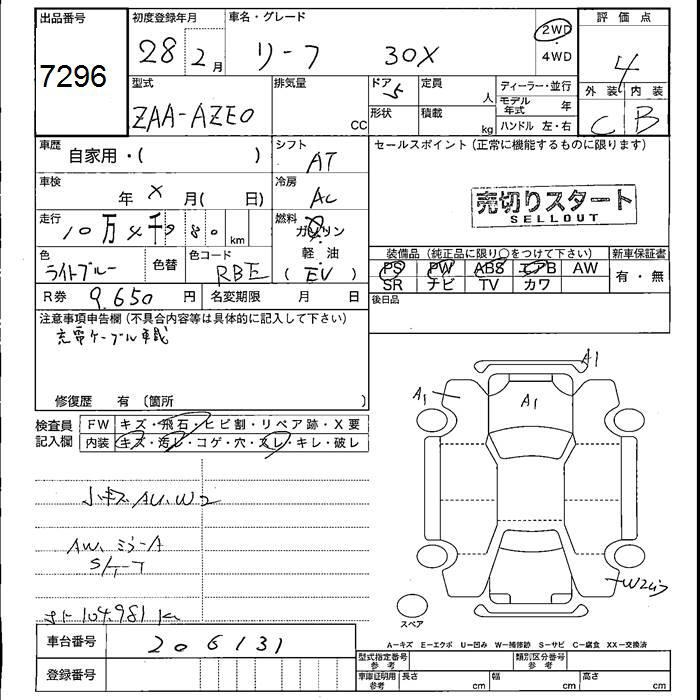 出品番号 初度登録年月 車名・グレード 評価点
7296 28 2月 リーフ 30X 2WD・4WD 4
型式 排気量 ドア 定員 ディーラー・並行 外装 内装
ZAA-AZE0 cc 5 人 モデル年式 年 C B
形状 積載 kg ハンドル 左・右
車歴 自家用・( ) シフト AT セールスポイント (正常に機能するものに限ります)
車検 年 X 月( 日) 冷房 AC 売切りスタート
SELLOUT
走行 10万4千980km 燃料 ガソリン・軽油 (EV)
色 ライトブルー 色替 色コード 装備品 (純正品に限り○をつけて下さい) 新車保証書
PS PW ABS エアB AW 有・無
SR ナビ TV カワ
R券 9,650円 名変期限 月 日 後日品
注意事項申告欄 (不具合内容等は具体的に記入して下さい)
充電ケーブル車載
修復歴 有 (箇所 )
検査員記入欄 FW キズ・飛石・ヒビ割・リペア跡・X要
内装 キズ・汚レ・コゲ・穴・スレ・キレ・破レ
A1
A1 A1
小キズ AU.W2
AW、ミラーA
104,981 km
スペア
A-キズ E-エクボ U-凹み W-補修跡 S-サビ C-腐食 XX-交換済
車台番号 206131 型式指定番号 参考 類別区分番号 参考
登録番号 車庫証明用 参考 長さ cm 幅 cm 高さ cm